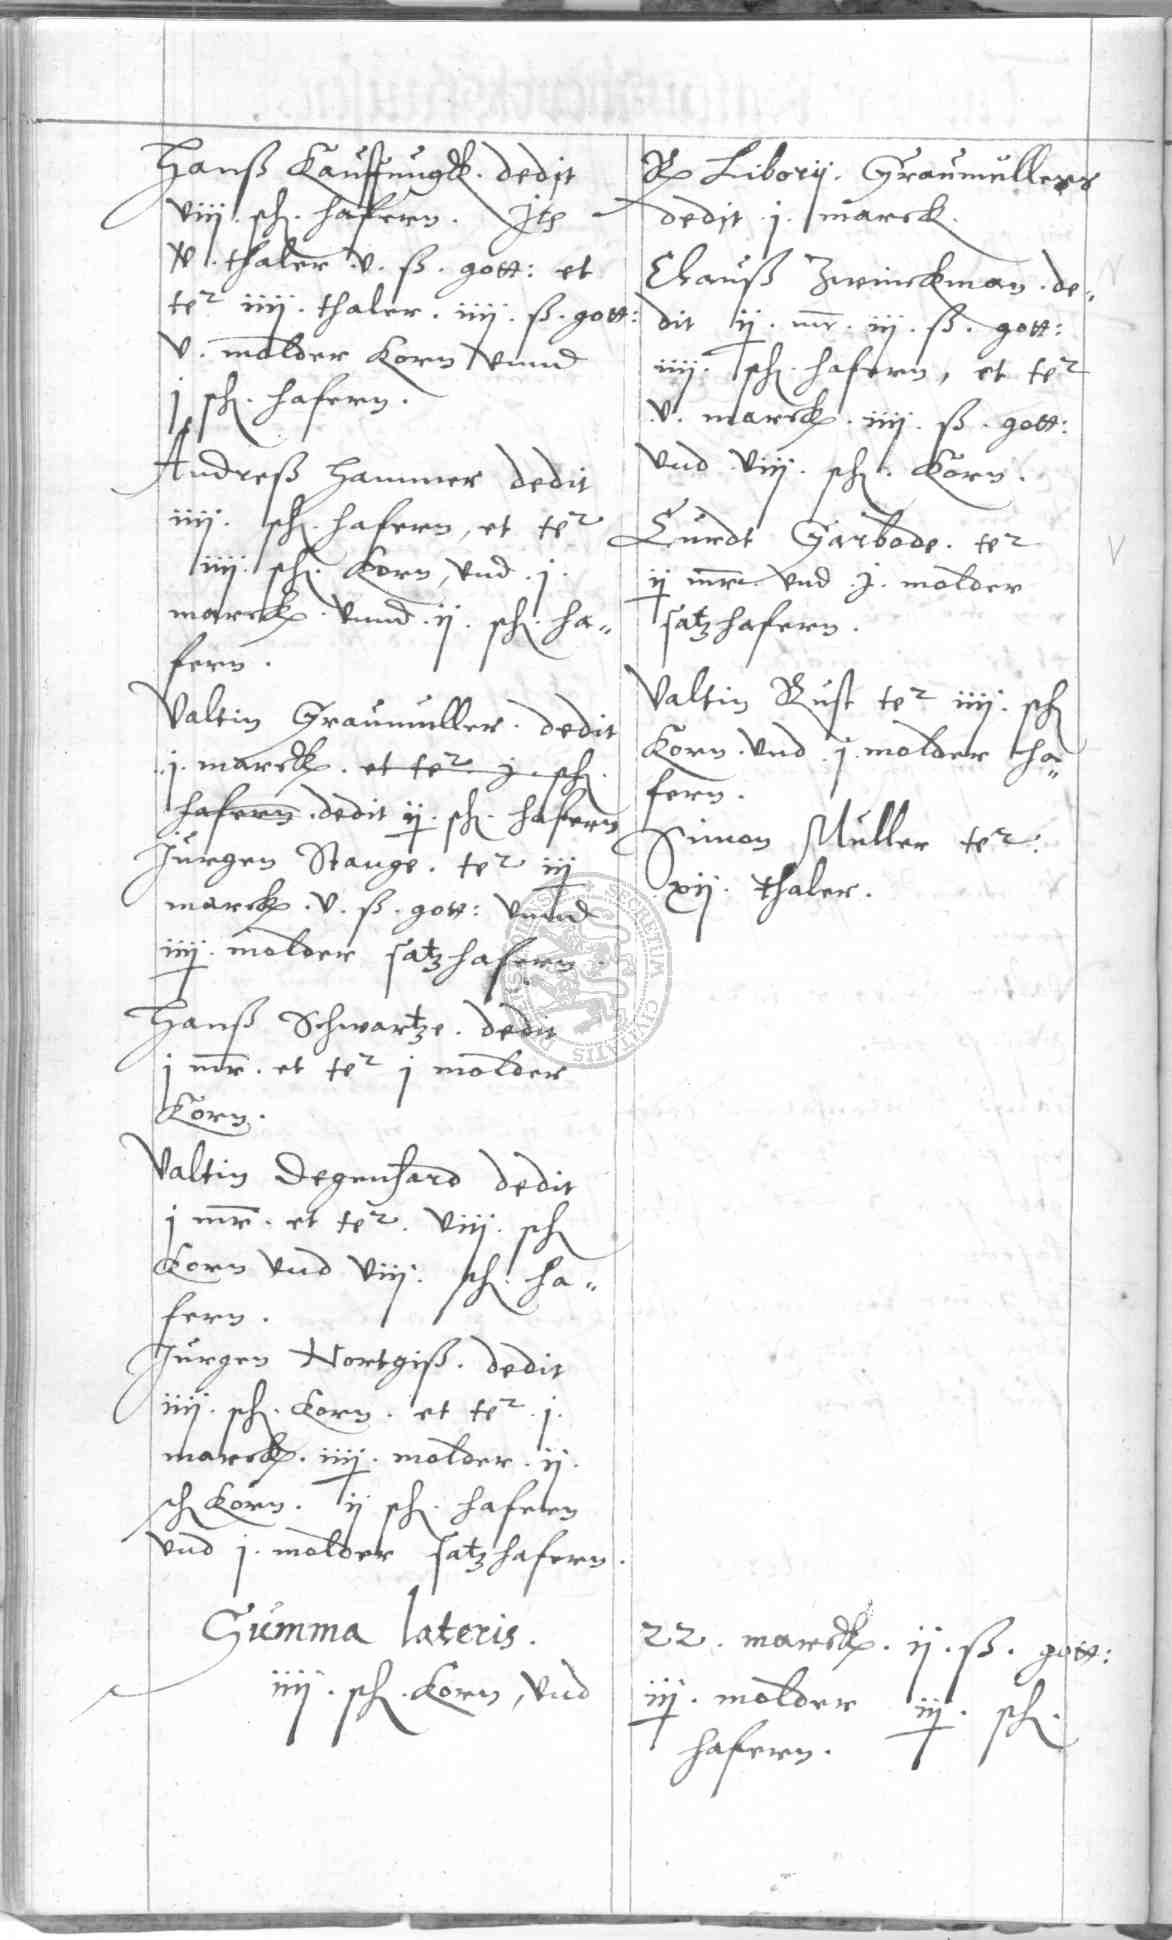 Hanß Kauffungk. dedit
viiij. sch. hafern. Ite
v. thaler .v. ß. gott: et
tet iiij. thaler. iiij. ß. gott:
v. molder Korn vnnd
j sch. hafern.
Andreß Hammer dedit
iiij. sch. hafern, et tet
iiij. sch. Korn, vnd .j.
marck. vnnd .ij. sch. ha„
fern.
Valtin Graumuller. dedit
.j. marck. et tet j. sch.
hafern. dedit ij. sch. hafern
Jurgen Stange. tet iij
marck .v. ß. gott: vnnd
iiij. molder satzhafern.
Hanß Schwartze. dedit
j mr. et tet j molder
Korn.
Valtin Degenhard dedit
j mr. et tet. viiij. sch
Korn vnd viij. sch. ha„
fern.
Jurgen Nortgiß. dedit
iiij. sch. Korn. et tet .j.
marck. iiij. molder .ij.
sch Korn. ij sch. hafern
vnd j. molder satzhafern.
Liborij. Graumullers
dedit .j. marck.
Clauß Zwinckman. de„
dit ij. mr. iij. ß. gott:
iiij. sch. hafern, et tet
.v. marck. iiij. ß. gott:
vnd viij. sch. Korn.
Curdt Garbode. tet
ij mr. vnd .j. molder
satzhafern.
Valtin Rust tet iiij. sch
Korn. vnd .j. molder ha„
fern.
Simon Muller tet.
xij. thaler.
Summa lateris. 22. marck. ij. ß. gott:
iiij. sch. Korn, vnd iij. molder iij. sch.
hafern.
SECRETUM CIVITATIS